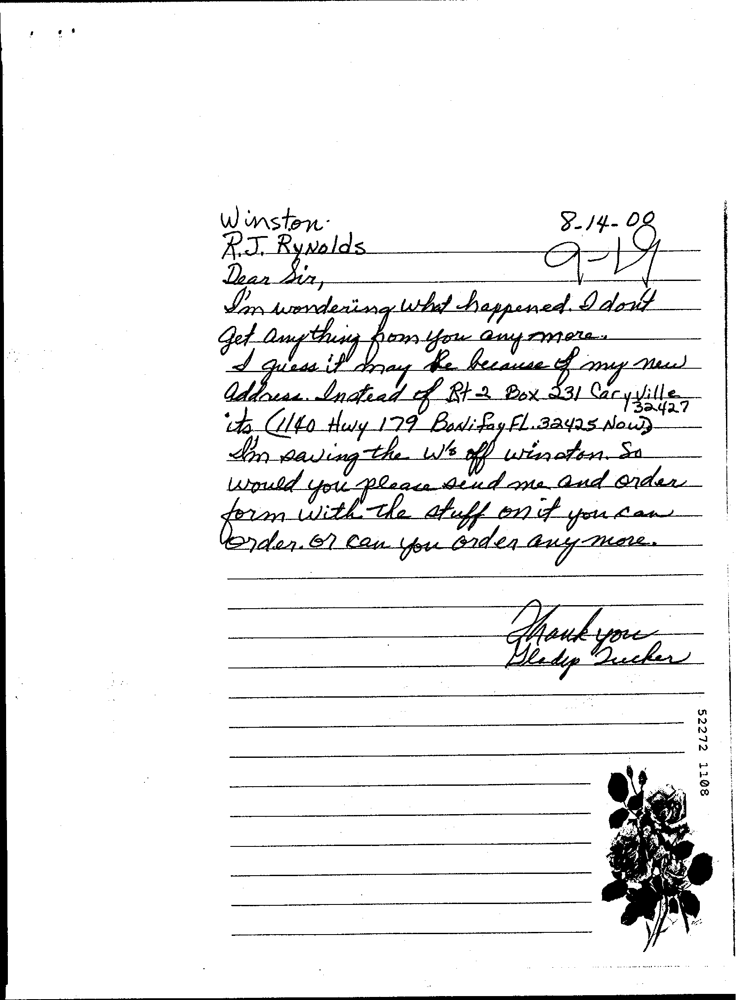 Winston.
8-14-00
R.J. RyNolds
9-19
Dear Sir,
I'm wondering what happened. I don't
get anything from you any more.
I guess it may be because of my new
address. Instead of Rt-2 Box 231 CaryVille
32427
its (1140 Hwy 179 Bonifay FL. 32425 Now)
I'm saving the W's off winston. So
would you please send me and order
form with the stuff on it you can
order. or can you order any more.
Thank you
Gladys Tucker
52272 1108